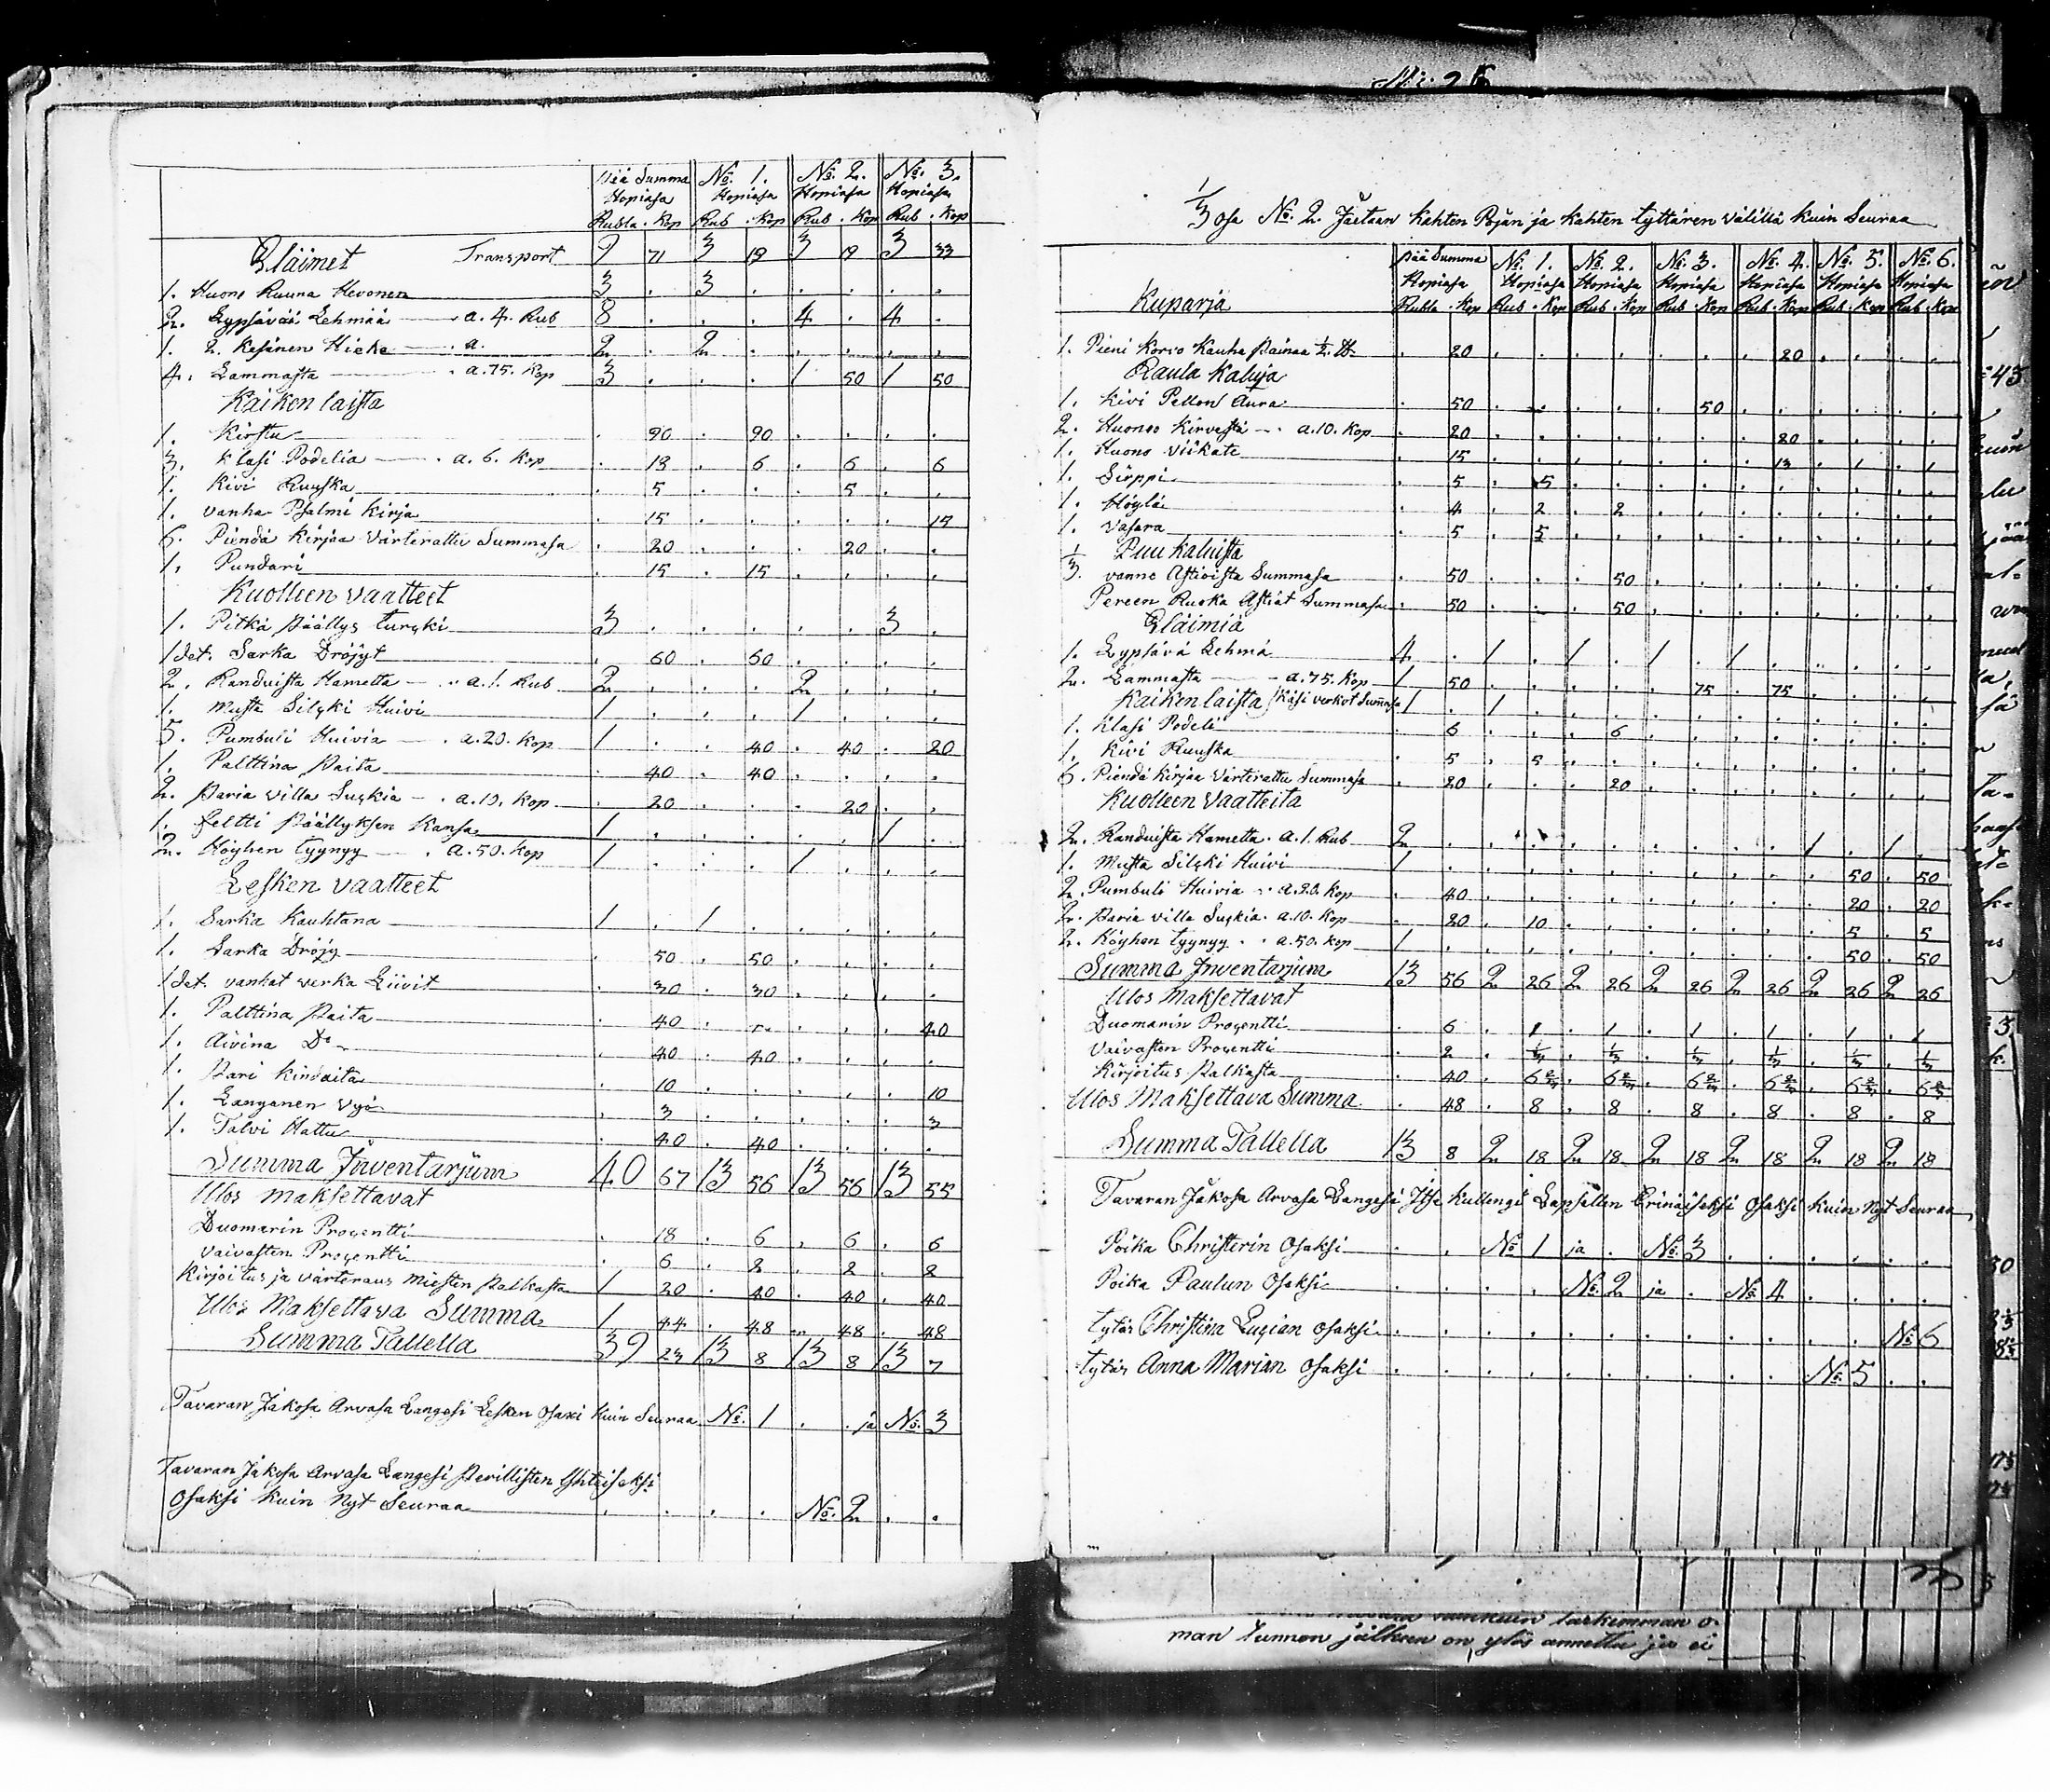 Pää Summa No. 1. No. 2. No. 3.
Hopiasa Hopiasa Hopiasa Hopiasa
Rubla . Kop Rub . Kop Rub . Kop Rub . Kop
Eläimet Transport 9 71 3 19 3 19 3 33
1. Huono Ruuna Hevonen 3 . 3 . . . . .
2. Lypsävää Lehmää a. 4. Rub 8 . . . 4 . 4 .
1. 2. Kesänen Hieho a. 2 . 2 . . . . .
4. Lammasta . a. 75. Kop 3 . . . 1 50 1 50
Kaiken laista
1. Kirstu . 90 . 90 . . . .
3. Klasi Podelia . a. 6. Kop . 18 . 6 . 6 . 6
1. Kivi Ruuska . 5 . . . 5 . .
1. vanha Psalmi Kirja . 15 . . . . . 15
6. Piendä Kirjaa Värterattu Summasa . 20 . . . 20 . .
1. Pundari . 15 . 15 . . . .
Kuolleen vaatteet
1. Pitkä Päällys turcki 3 . . . . . 3 .
1 det. Sarka Dröjyt . 60 . 60 . . . .
2. Randuista Hametta . a. 1. Rub 2 . . . 2 . . .
1. Musta Silcki Huivi 1 . . . 1 . . .
5. Pumbuli Huivia . a. 20. Kop 1 . . 40 . 40 . 20
1. Palttina Paita . 40 . 40 . . . .
2. Paria villa Suckia . a. 10. Kop . 20 . . . 20 . .
1. feltti Päällyksen Kansa 1 . . . . . 1 .
2. Höyhen tyynyy . a. 50. Kop 1 . . . 1 . . .
Lesken vaatteet
1. Sarka Kauhtana 1 . 1 . . . . .
1. Sarka Dröjy . 50 . 50 . . . .
1 det. vanhat verka Liivit . 30 . 30 . . . .
1. Palttina Paita . 40 . . . . . 40
1. Aivina Do . 40 . 40 . . . .
1. Pari Kindaita . 10 . . . . . 10
1. Langanen Vyö . 3 . . . . . 3
1. Talvi Hattu . 40 . 40 . . . .
Summa Jnventarjum 40 67 13 56 13 56 13 55
Ulos maksettavat
Duomarin Procentti . 18 . 6 . 6 . 6
Vaivasten Procentti . 6 . 2 . 2 . 2
Kirjoitus ja värteraus Miesten Palkasta 1 20 . 40 . 40 . 40
Ulos Maksettava Summa 1 44 . 48 . 48 . 48
Summa Tallella 39 23 13 8 13 8 13 7
Tavaran Jakosa Arvasa Langesi Lesken Osaxi Kuin Seuraa No. 1 . . ja No. 3
Tavaran Jakosa Arvasa Langesi Perillisten Yhteiseksi
Osaksi Kuin Nyt Seuraa . . . . No. 2 . .
1/3 Osa No. 2. Jaetaan Kahten Pojan ja Kahten tyttären välillä Kuin Seuraa
Pää Summa No. 1. No. 2. No. 3. No. 4. No. 5. No. 6.
Hopiasa Hopiasa Hopiasa Hopiasa Hopiasa Hopiasa Hopiasa
Kuparja Rubla . Kop Rub . Kop Rub . Kop Rub . Kop Rub . Kop Rub . Kop Rub . Kop
1. Pieni Korvo Kauha Painaa 1/2 . 20 . . . . . . . 20 . . . .
Rauta Kaluja
1. Kivi Pellon Aura . 50 . . . . . 50 . . . . . .
2. Huonoo Kirvestä . a. 10. Kop . 20 . . . . . . . 20 . . . .
1. Huono Viikate . 15 . . . . . . . 13 . 1 . 1
1. Sirppi . 5 . 5 . . . . . . . . . .
1. Höylä . 4 . 2 . 2 . . . . . . . .
1. Vasara . 5 . 5 . . . . . . . . . .
Puu Kaluista
1/3. vanno Astioista Summasa . 50 . . . 50 . . . . . . . .
Pereen Ruoka Astiat Summasa . 50 . . . 50 . . . . . . . .
Eläimiä
1. Lypsävä Lehmä 4 . 1 . 1 . 1 . 1 . . . . .
2. Lammasta a. 75. Kop 1 50 . . . . . 75 . 75 . . . .
Kaiken laista Käsi verkot Summasa 1 . 1 . . . . . . . . . . .
1. Klasi Podeli . 6 . . . 6 . . . . . . . .
1. Kivi Ruuska . 5 . 5 . . . . . . . . . .
6. Piendä Kirjaa Värterattu Summasa . 20 . . . 20 . . . . . . . .
Kuolleen Vaatteita
2. Randuista Hametta . a. 1. Rub 2 . . . . . . . . . 1 . 1 .
1. Musta Silcki Huivi 1 . . . . . . . . . . 50 . 50
2. Pumbuli Huivia . a. 20. Kop . 40 . . . . . . . . . 20 . 20
2. Paria villa Suckia . a. 10. Kop . 20 . 10 . . . . . . . 5 . 5
2. Höyhen tyynyy . . a. 50. Kop 1 . . . . . . . . . . 50 . 50
Summa Jnventarjum 13 56 2 26 2 26 2 26 2 26 2 26 2 26
Ulos Maksettavat
Duomarin Procentti . 6 . 1 . 1 . 1 . 1 . 1 . 1
Vaivasten Procentti . 2 . 1/3 . 1/3 . 1/3 . 1/3 . 1/3 . 1/3
Kirjoitus Palkasta . 40 . 6 2/3 . 6 2/3 . 6 2/3 . 6 2/3 . 6 2/3 . 6 2/3
Ulos Maksettava Summa . 48 . 8 . 8 . 8 . 8 . 8 . 8
Summa Tallella 13 8 2 18 2 18 2 18 2 18 2 18 2 18
Tavaran Jakosa Arvasa Langesi Itse Kullengi Lapsellen Erinäiseksi Osaksi Kuin Nyt Seuraa
Poika Christerin Osaksi . . No 1 ja . No. 3 . . . . . .
Poika Paulun Osaksi . . . . No. 2 ja . No. 4 . . . .
tytär Christina Lucian Osaksi . . . . . . . . . . . . No. 6
tytär Anna Marian Osaksi . . . . . . . . . . No. 5 . .
man tunnon jälkeen on ylös annettu ja ei